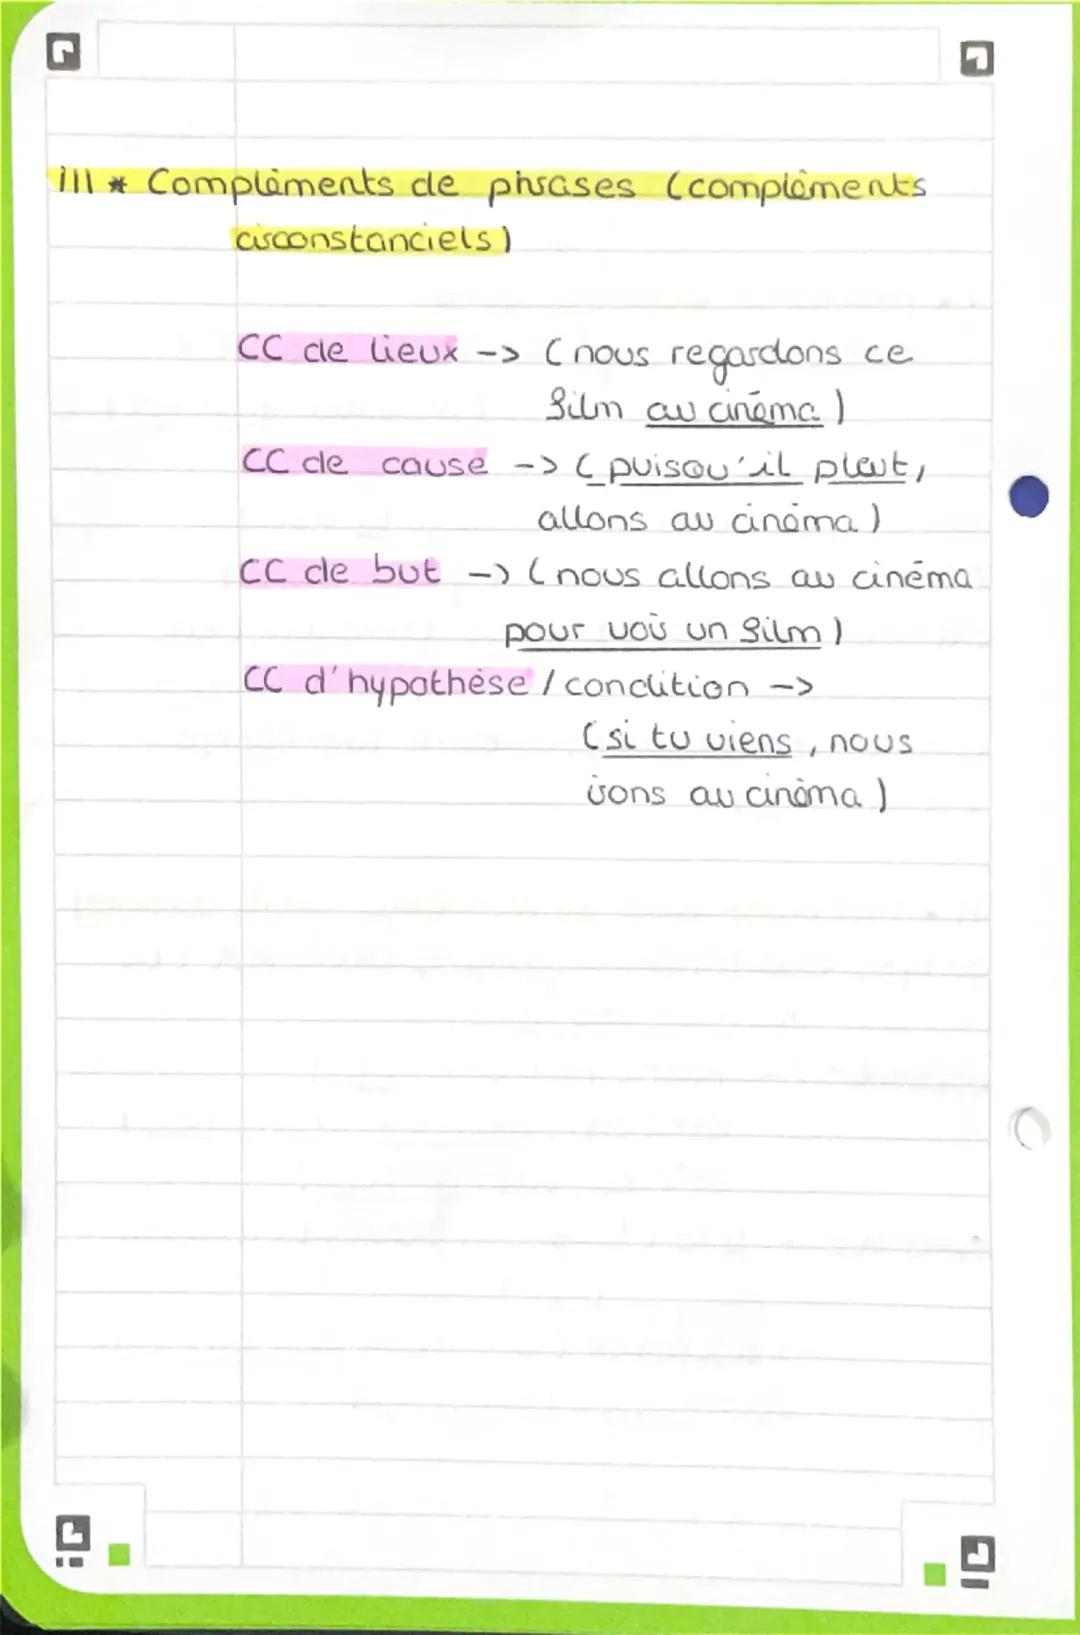 III * Compléments de phrases (compléments
circonstanciels)
CC de lieux -> (nous regardons ce
film au cinéma)
CC de cause -> (puisqu'il pleut,
allons au cinéma)
CC de but -> (nous allons au cinéma
pour voir un film)
CC d'hypothèse / condition ->
(si tu viens, nous
irons au cinéma)